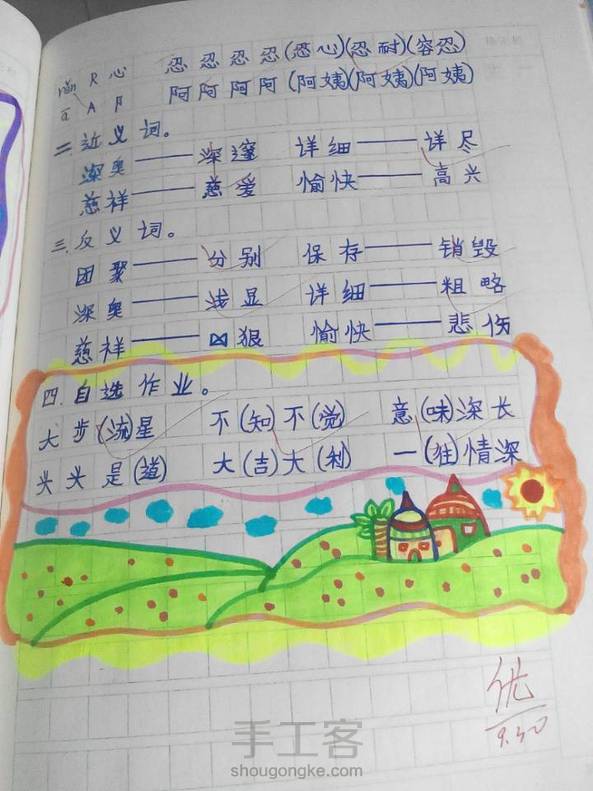 rěn R 心 忍 忍 忍 忍 (忍心)(忍耐)(容忍)
ā A 阝 阿 阿 阿 阿 (阿姨)(阿姨)(阿姨)
二.近义词。
深奥——深邃 详细——详尽
慈祥——慈爱 愉快——高兴
三.反义词。
团聚——分别 保存——销毁
深奥——浅显 详细——粗略
慈祥——狠 愉快——悲伤
四.自选作业。
大步(流)星 不(知)不(觉) 意(味)深长
头头是(道) 大(吉)大(利) 一(往)情深
优
9.30
手工客
shougongke.com